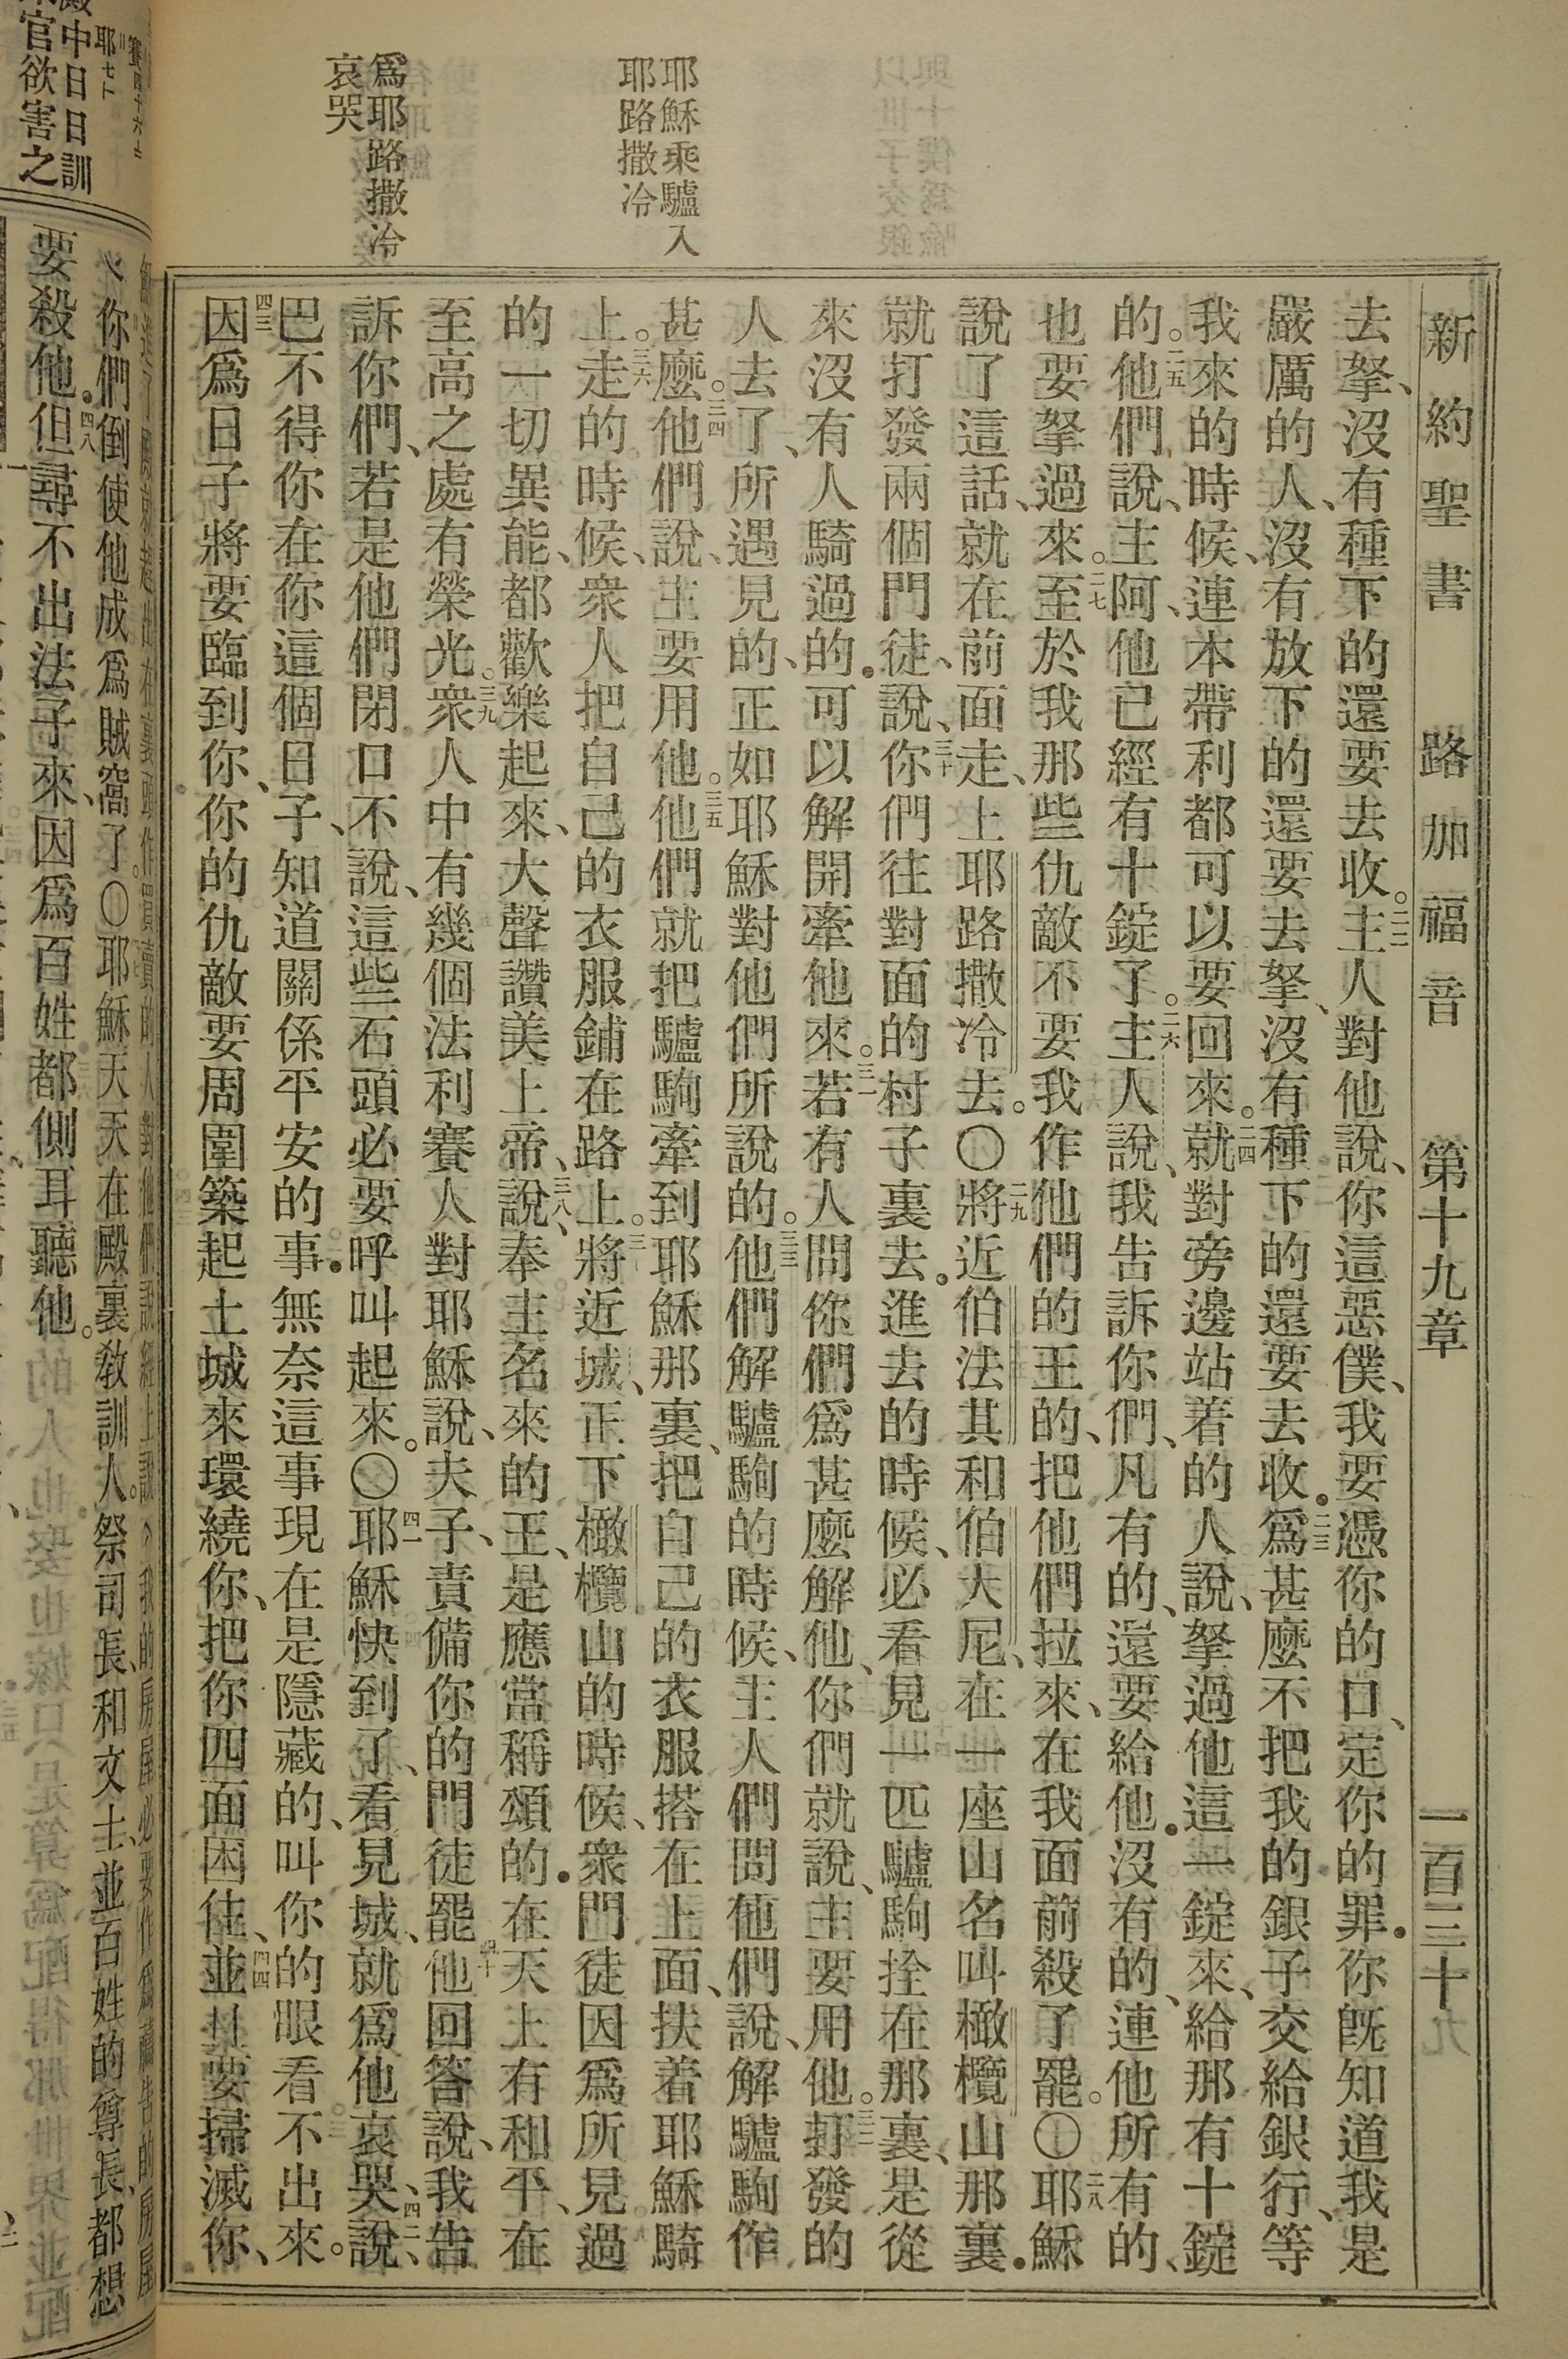 新約聖書 路加福音 第十九章 一百三十九
去拏、沒有種下的還要去收。二二主人對他說、你這惡僕、我要憑你的口、定你的罪．你旣知道我是
嚴厲的人、沒有放下的還要去拏、沒有種下的還要去收．二三爲甚麼不把我的銀子交給銀行、等
我來的時候、連本帶利都可以要回來。二四就對旁邊站着的人說、拏過他這一錠來、給那有十錠
的。二五他們說、主阿、他已經有十錠了。二六主人說、我吿訴你們、凡有的、還要給他．沒有的、連他所有的、
也要拏過來。二七至於我那些仇敵不要我作他們的王的、把他們拉來、在我面前殺了罷。〇二八耶穌
說了這話、就在前面走、上耶路撒冷去。〇二九將近伯法其和伯大尼、在一座山名叫橄欖山那裏．
就打發兩個門徒、說、三十你們往對面的村子裏去．進去的時候、必看見一匹驢駒拴在那裏、是從
來沒有人騎過的．可以解開牽他來。三一若有人問你們爲甚麼解他、你們就說、主要用他。三二打發的
人去了、所遇見的、正如耶穌對他們所說的。三三他們解驢駒的時候、主人們問他們說、解驢駒作
甚麼。三四他們說、主要用他。三五他們就把驢駒牽到耶穌那裏、把自己的衣服搭在上面、扶着耶穌騎
上。三六走的時候、衆人把自己的衣服鋪在路上。三七將近城、正下橄欖山的時候、衆門徒因爲所見過
的一切異能、都歡樂起來、大聲讚美上帝、三八說、奉主名來的王、是應當稱頌的．在天上有和平、在
至高之處有榮光。三九衆人中有幾個法利賽人對耶穌說、夫子、責備你的門徒罷。四十他回答說、我吿
訴你們、若是他們閉口不說、這些石頭必要呼叫起來。〇四一耶穌快到了、看見城、就爲他哀哭、四二說、
巴不得你在你這個日子、知道關係平安的事．無奈這事現在是隱藏的、叫你的眼看不出來。
四三因爲日子將要臨到你、你的仇敵要周圍築起土城來環繞你、把你四面困住、四四並且要掃滅你、
耶穌乘驢入
耶路撒冷
爲耶路撒冷
哀哭
你們倒使他成爲賊窩了。〇耶穌天天在殿裏敎訓人。祭司長、和文士、並百姓的尊長、都想
要殺他．四八但尋不出法子來、因爲百姓都側耳聽他。
中日日訓
官欲害之